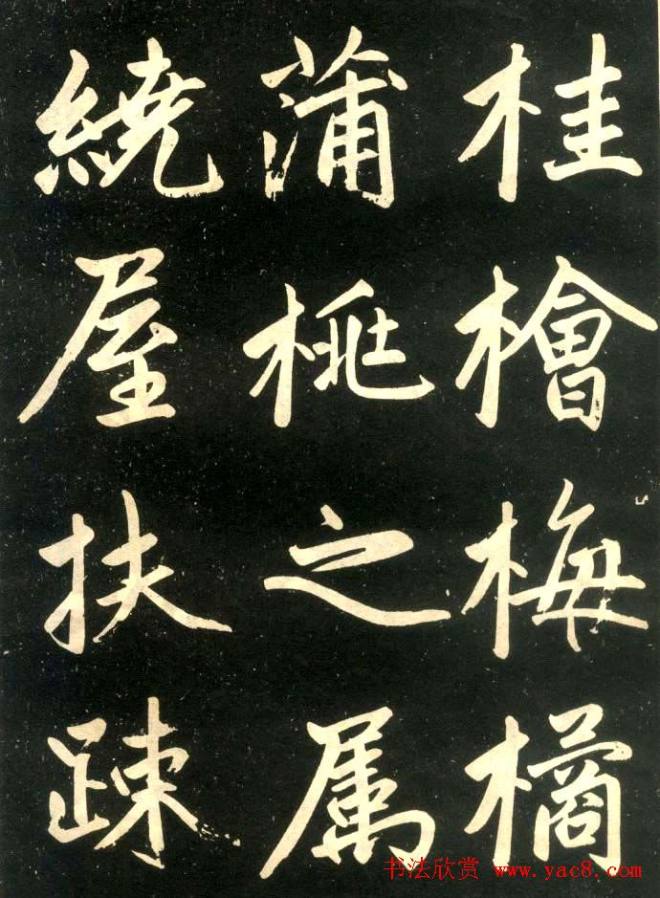 桂檜梅橘
蒲桃之属
繞屋扶踈
书法欣赏 www.yac8.com